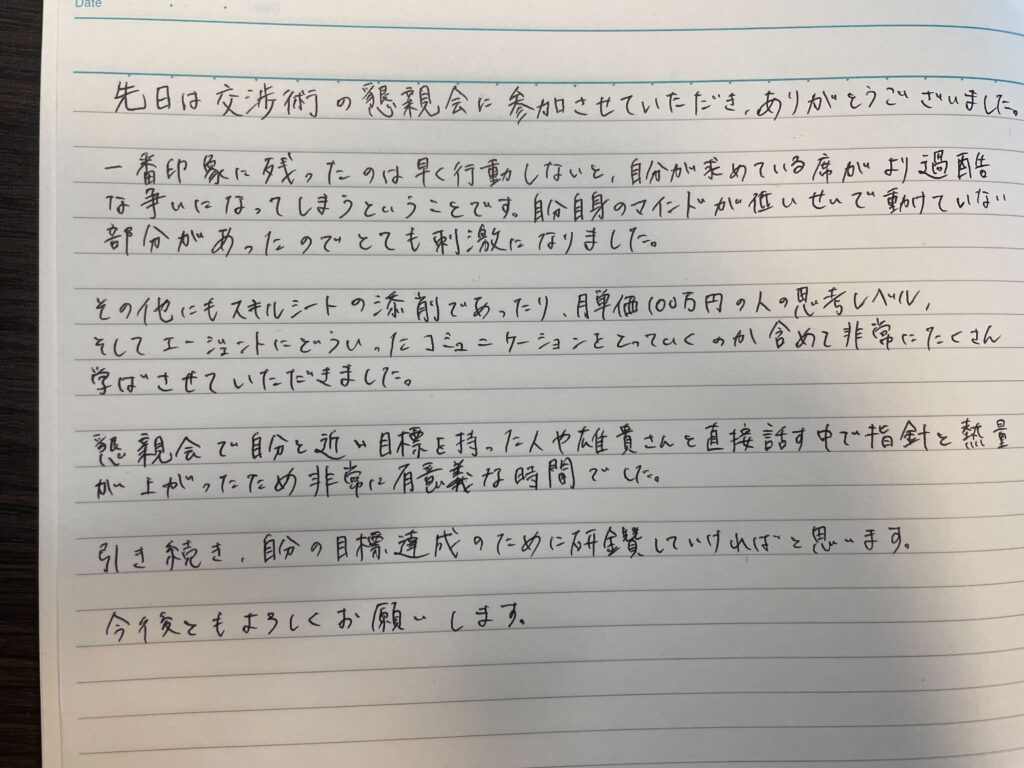 Date
先日は交渉術の懇親会に参加させていただき、ありがとうございました。
一番印象に残ったのは早く行動しないと、自分が求めている席がより過酷
な争いになってしまうということです。自分自身のマインドが低いせいで動けていない
部分があったのでとても刺激になりました。
その他にもスキルシートの添削であったり、月単価100万円の人の思考レベル、
そしてエージェントにどういったコミュニケーションをとっていくのか含めて非常にたくさん
学ばさせていただきました。
懇親会で自分と近い目標を持った人や雄貴さんと直接話す中で指針と熱量
が上がったため非常に有意義な時間でした。
引き続き、自分の目標達成のために研鑽していければと思います。
今後ともよろしくお願いします。